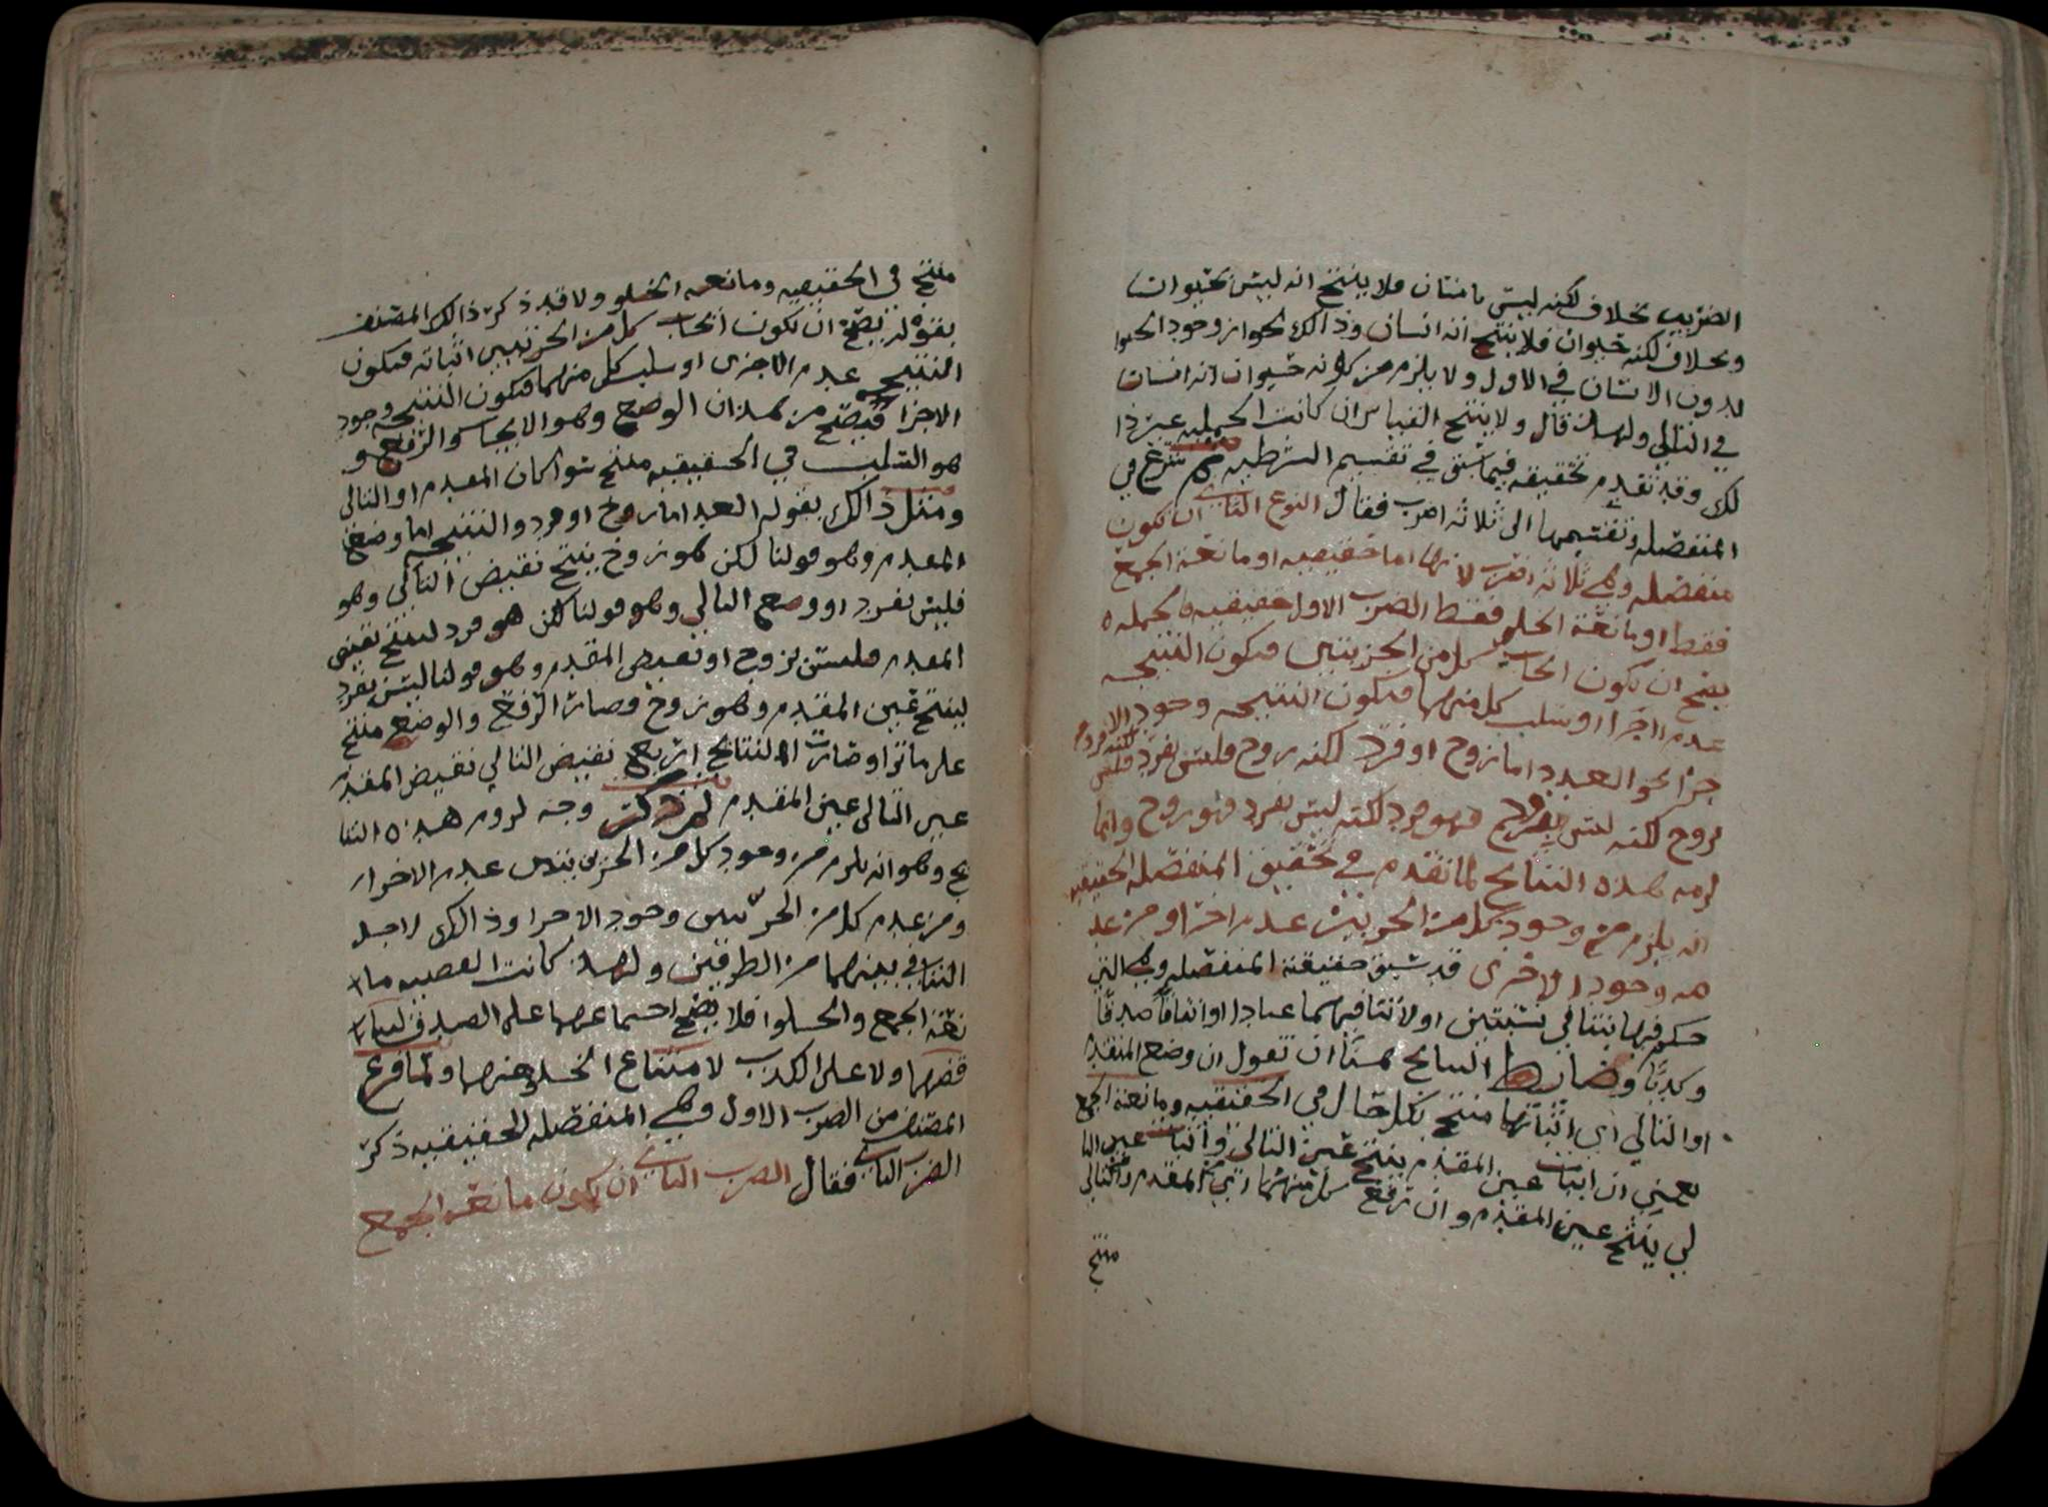 الضربين بخلاف لكنه ليس بانسان فلا ينتج انه ليس بحيوان
وبخلاف لكنه حيوان فلا ينتج انه انسان وذالك لجواز وجود الحيوا
بدون الانسان في الاول ولا يلزم من كونه حيوان انه انسان
في التالي ولهذا قال ولا ينتج القياس ان كانت الحمليه غير ذا
لك وقد تقدم تحقيقه فيما سبق في تقسيم الشرطيه ثم شرع في
المنفصله وتقسيمها الى ثلاثه اضرب فقال النوع الثاني ان تكون
منفصله وهي ثلاثه اضرب لانها اما حقيقيه او مانعة الجمع
فقط او مانعة الخلو فقط الضرب الاول حقيقيه
يصح ان يكون ايجاب كل من الجزيين فتكون النتيجه
عدم الاخرا او سلب كل منهما فتكون النتيجه وجود الا
خرا نحو العدد اما زوج او فرد لكنه زوج فليس بفرد لكنه فرد فليس
بزوج لكنه ليس بزوج فهو فرد لكنه ليس بفرد فهو زوج وانما
لزمه هذه النتائج لما تقدم في تحقيق المنفصله الحقيقيه
انه يلزم من وجود كل من الجزيين عدم اخرا ومن عد
مه وجود الاخرى قد سبق حقيقة المنفصله وهي التي
حكم فيها بتنافي نسبتين او لا تنافيهما عنادا او اتفاقا صدقا
وكذبا وضابط النتائج هنا ان تقول ان وضع المقدم
او التالي اي اثباتها منتج بكل حال في الحقيقيه ومانعة الجمع
يعني ان اثبات عين المقدم ينتج عين التالي واثبات عين التا
لي ينتج عين المقدم وان ترفع كل منهما اي المقدم والتالي
منتج
منتج في الحقيقيه ومانعه الخلو ولا قد ذكر ذالك المصنف
بقوله يصح ان يكون ايجاب كل من الجزئيين اثباته فتكون
النتيجه عدم الاخرى او سلب كل منهما فتكون النتيجه وجود
الاخرا فيصح من هذا ان الوضع وهو الايجاب والرفع و
هو السلب في الحقيقيه منتج سوا كان المقدم او التالي
ومثل ذالك بقوله العدد اما زوج او فرد والنتيجه اما وضع
المقدم وهو قولنا لكن هو زوج ينتج نقيض التالي وهو
فليس بفرد او وضع التالي وهو قولنا لكن هو فرد لينتج نقيض
المقدم فليس بزوج او نقيض المقدم وهو قولنا ليس بفرد
لينتج عين المقدم وهو زوج وصار الرفع والوضع منتج
على ما ترا وصارت النتائج اربع نقيض التالي نقيض المقدم
عين التالي عين المقدم وجه لزوم هذه النتا
يج وهو انه يلزم من وجود كل من الجزيين عدم الاخرا
ومن عدم كل من الجزئين وجود الاخرا وذالك لاجل
التنافي بينهما من الطرفين ولهذا كانت القضيه ما
نعة الجمع والخلوا فلا يصح اجتماعهما على الصدق
ولا على الكذب لامتناع الخلو عنهما ولما فرغ
المصنف من الضرب الاول وهي المنفصله الحقيقيه ذكر
الضرب الثاني فقال الضرب الثاني ان تكون مانعه الجمع